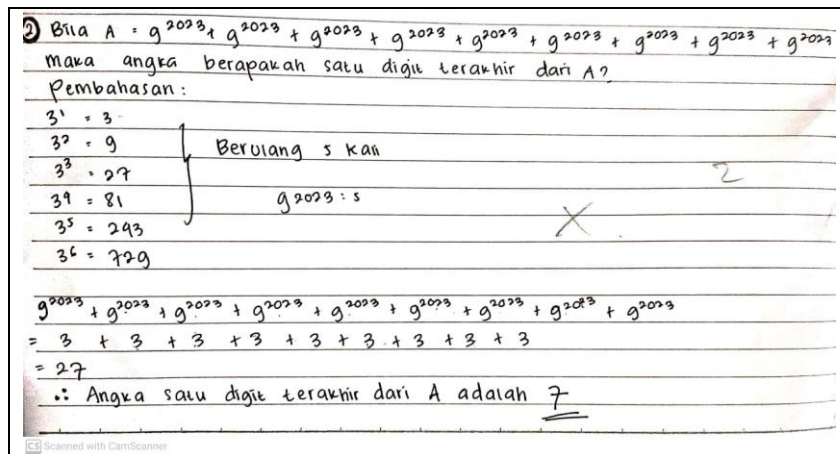 ② Bila A = 9²⁰²³ + 9²⁰²³ + 9²⁰²³ + 9²⁰²³ + 9²⁰²³ + 9²⁰²³ + 9²⁰²³ + 9²⁰²³ + 9²⁰²³
maka angka berapakah satu digit terakhir dari A?
Pembahasan :
3¹ = 3
3² = 9
Berulang 5 kali
3³ = 27
2
3⁴ = 81
9²⁰²³ : 5
X
3⁵ = 243
3⁶ = 729
9²⁰²³ + 9²⁰²³ + 9²⁰²³ + 9²⁰²³ + 9²⁰²³ + 9²⁰²³ + 9²⁰²³ + 9²⁰²³ + 9²⁰²³
= 3 + 3 + 3 + 3 + 3 + 3 + 3 + 3 + 3
= 27
∴ Angka satu digit terakhir dari A adalah 7
CS Scanned with CamScanner